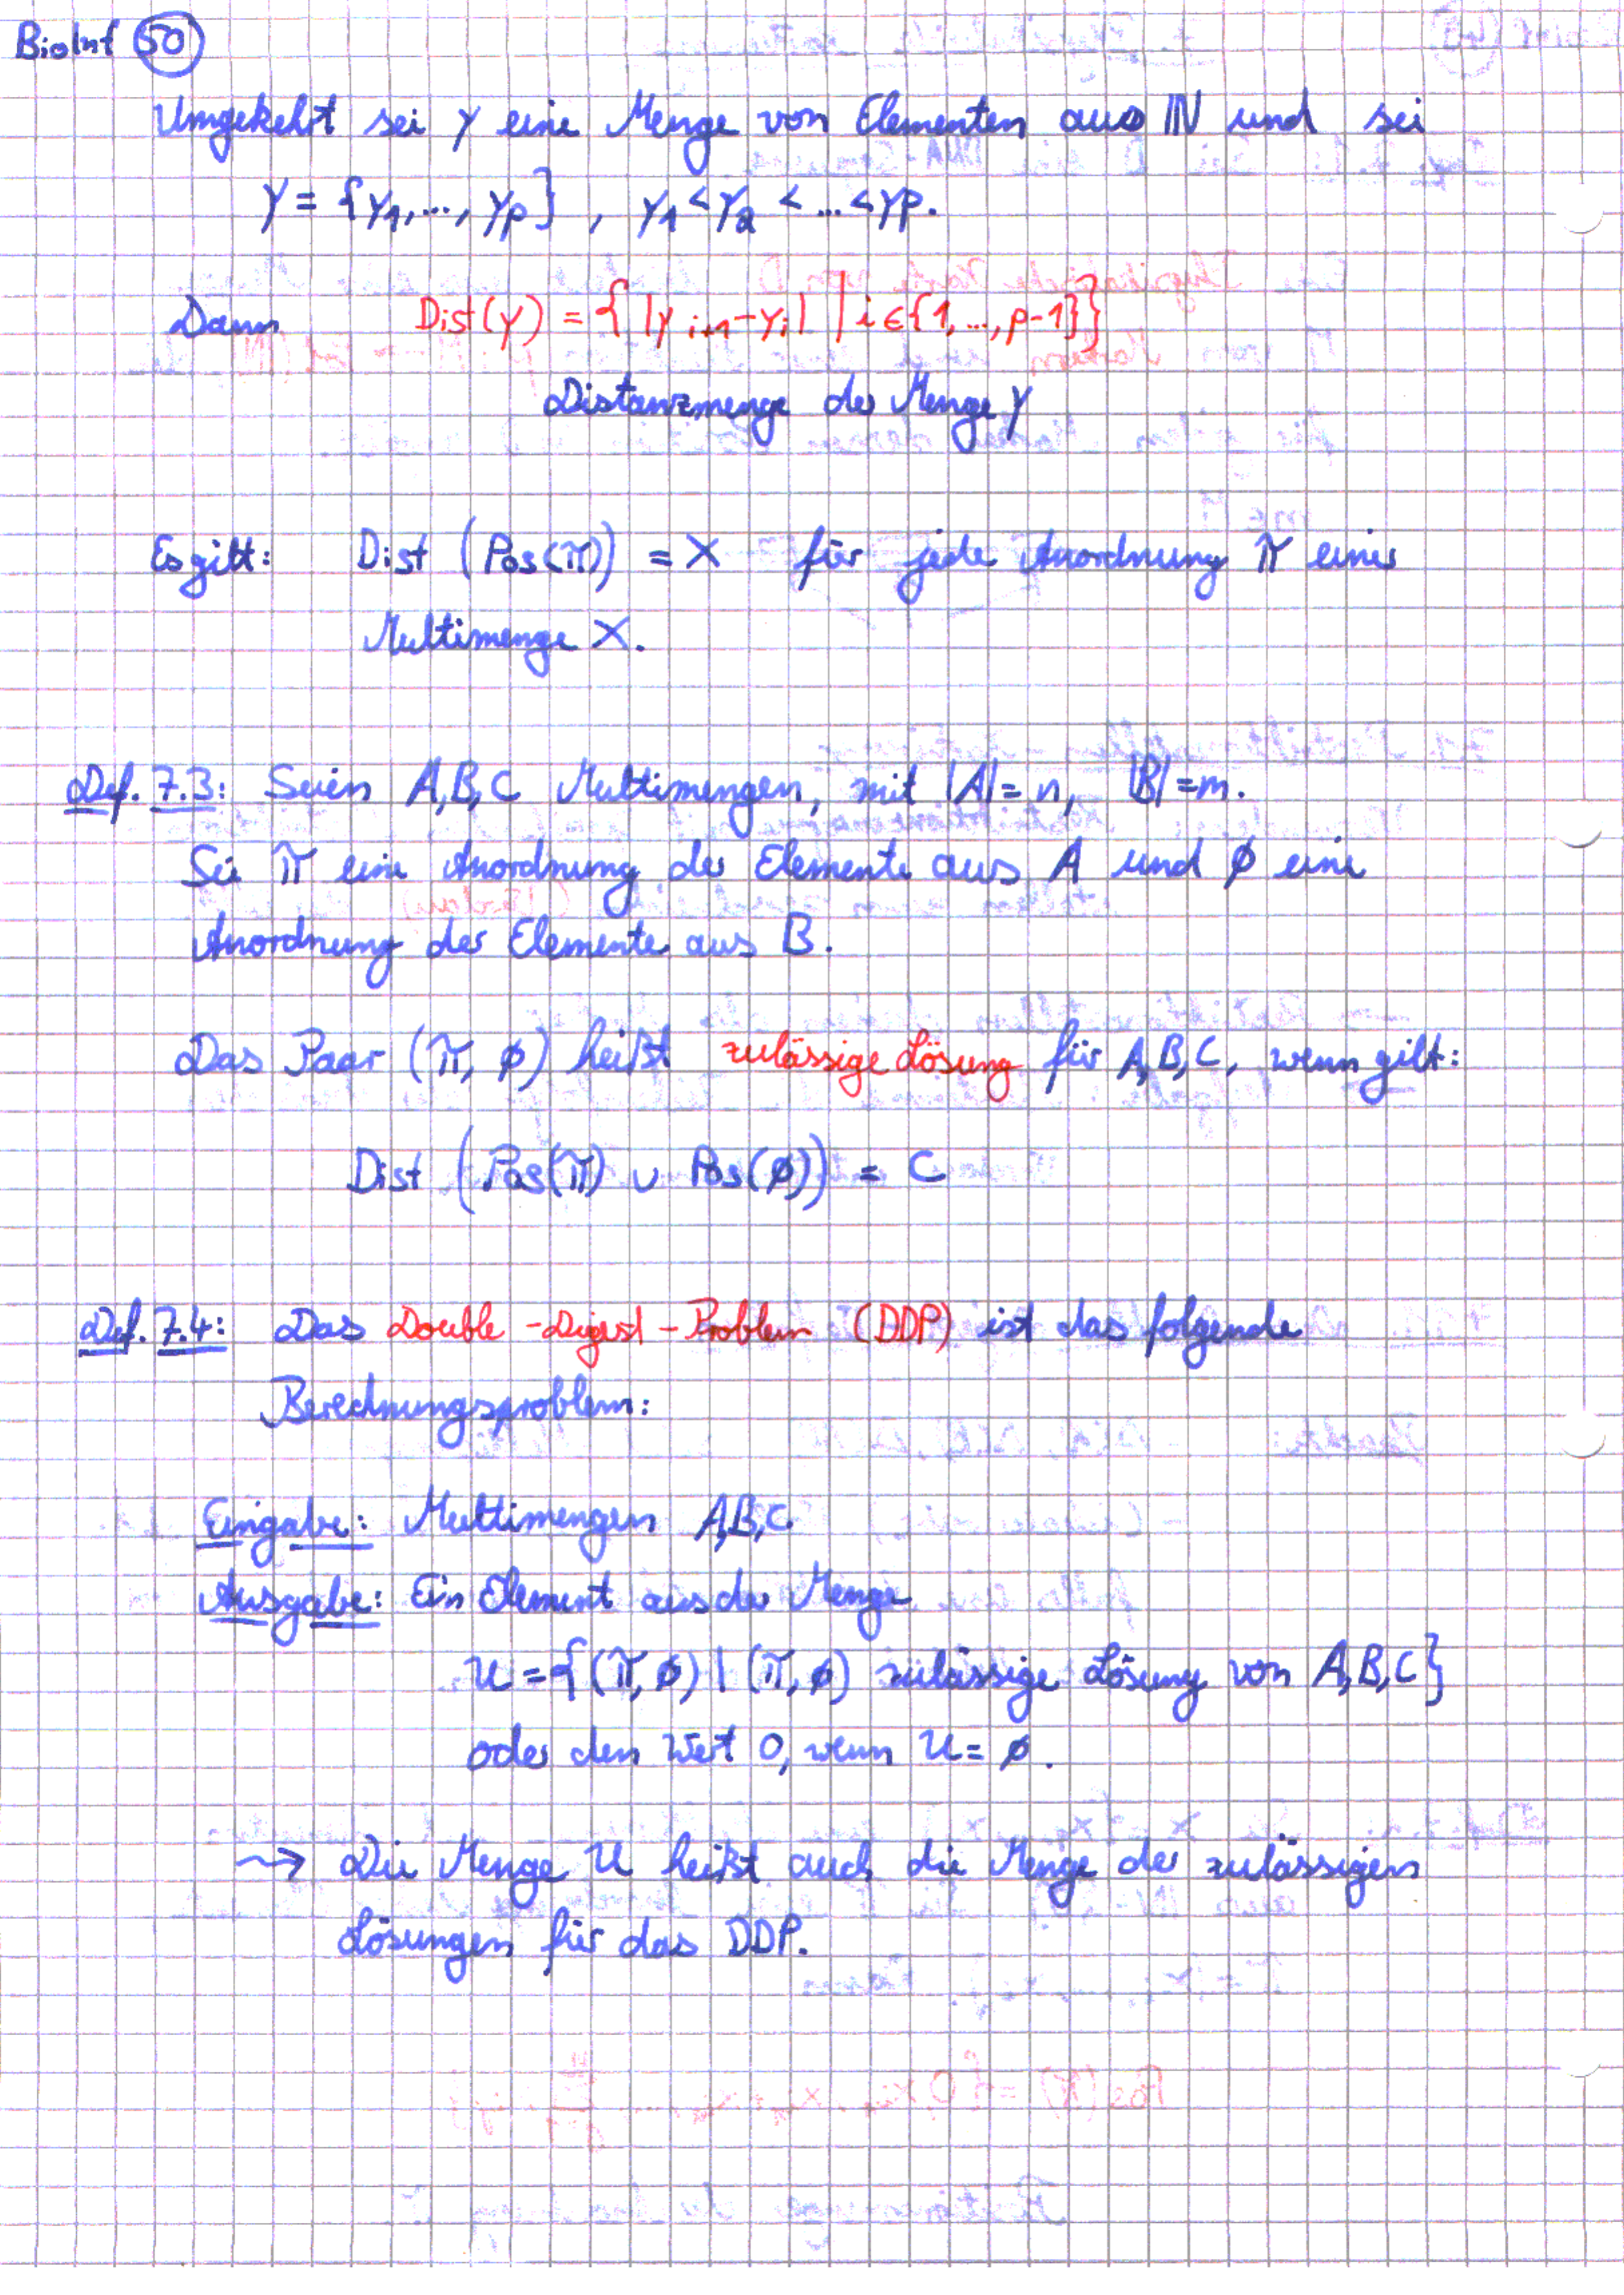 BioInf 50
Umgekehrt sei Y eine Menge von Elementen aus ℕ und sei
Y = {y1,..., yp} , y1 < y2 < ... < yp.
Dann Dist(Y) = { |y i+1 - yi| | i ∈ {1,..., p-1}}
Distanzmenge der Menge Y
Es gilt: Dist (Pos(π)) = X für jede Anordnung π einer
Multimenge X.
Def. 7.3: Seien A,B,C Multimengen, mit |A| = n, |B| = m.
Sei π eine Anordnung der Elemente aus A und ϕ eine
Anordnung der Elemente aus B.
Das Paar (π, ϕ) heißt zulässige Lösung für A,B,C, wenn gilt:
Dist (Pos(π) ∪ Pos(ϕ)) = C
Def. 7.4: Das Double-Digest-Problem (DDP) ist das folgende
Berechnungsproblem:
Eingabe: Multimengen A,B,C
Ausgabe: Ein Element aus der Menge
U = {(π,ϕ) | (π,ϕ) zulässige Lösung von A,B,C}
oder den Wert 0, wenn U = ∅.
⇝ Die Menge U heißt auch die Menge der zulässigen
Lösungen für das DDP.